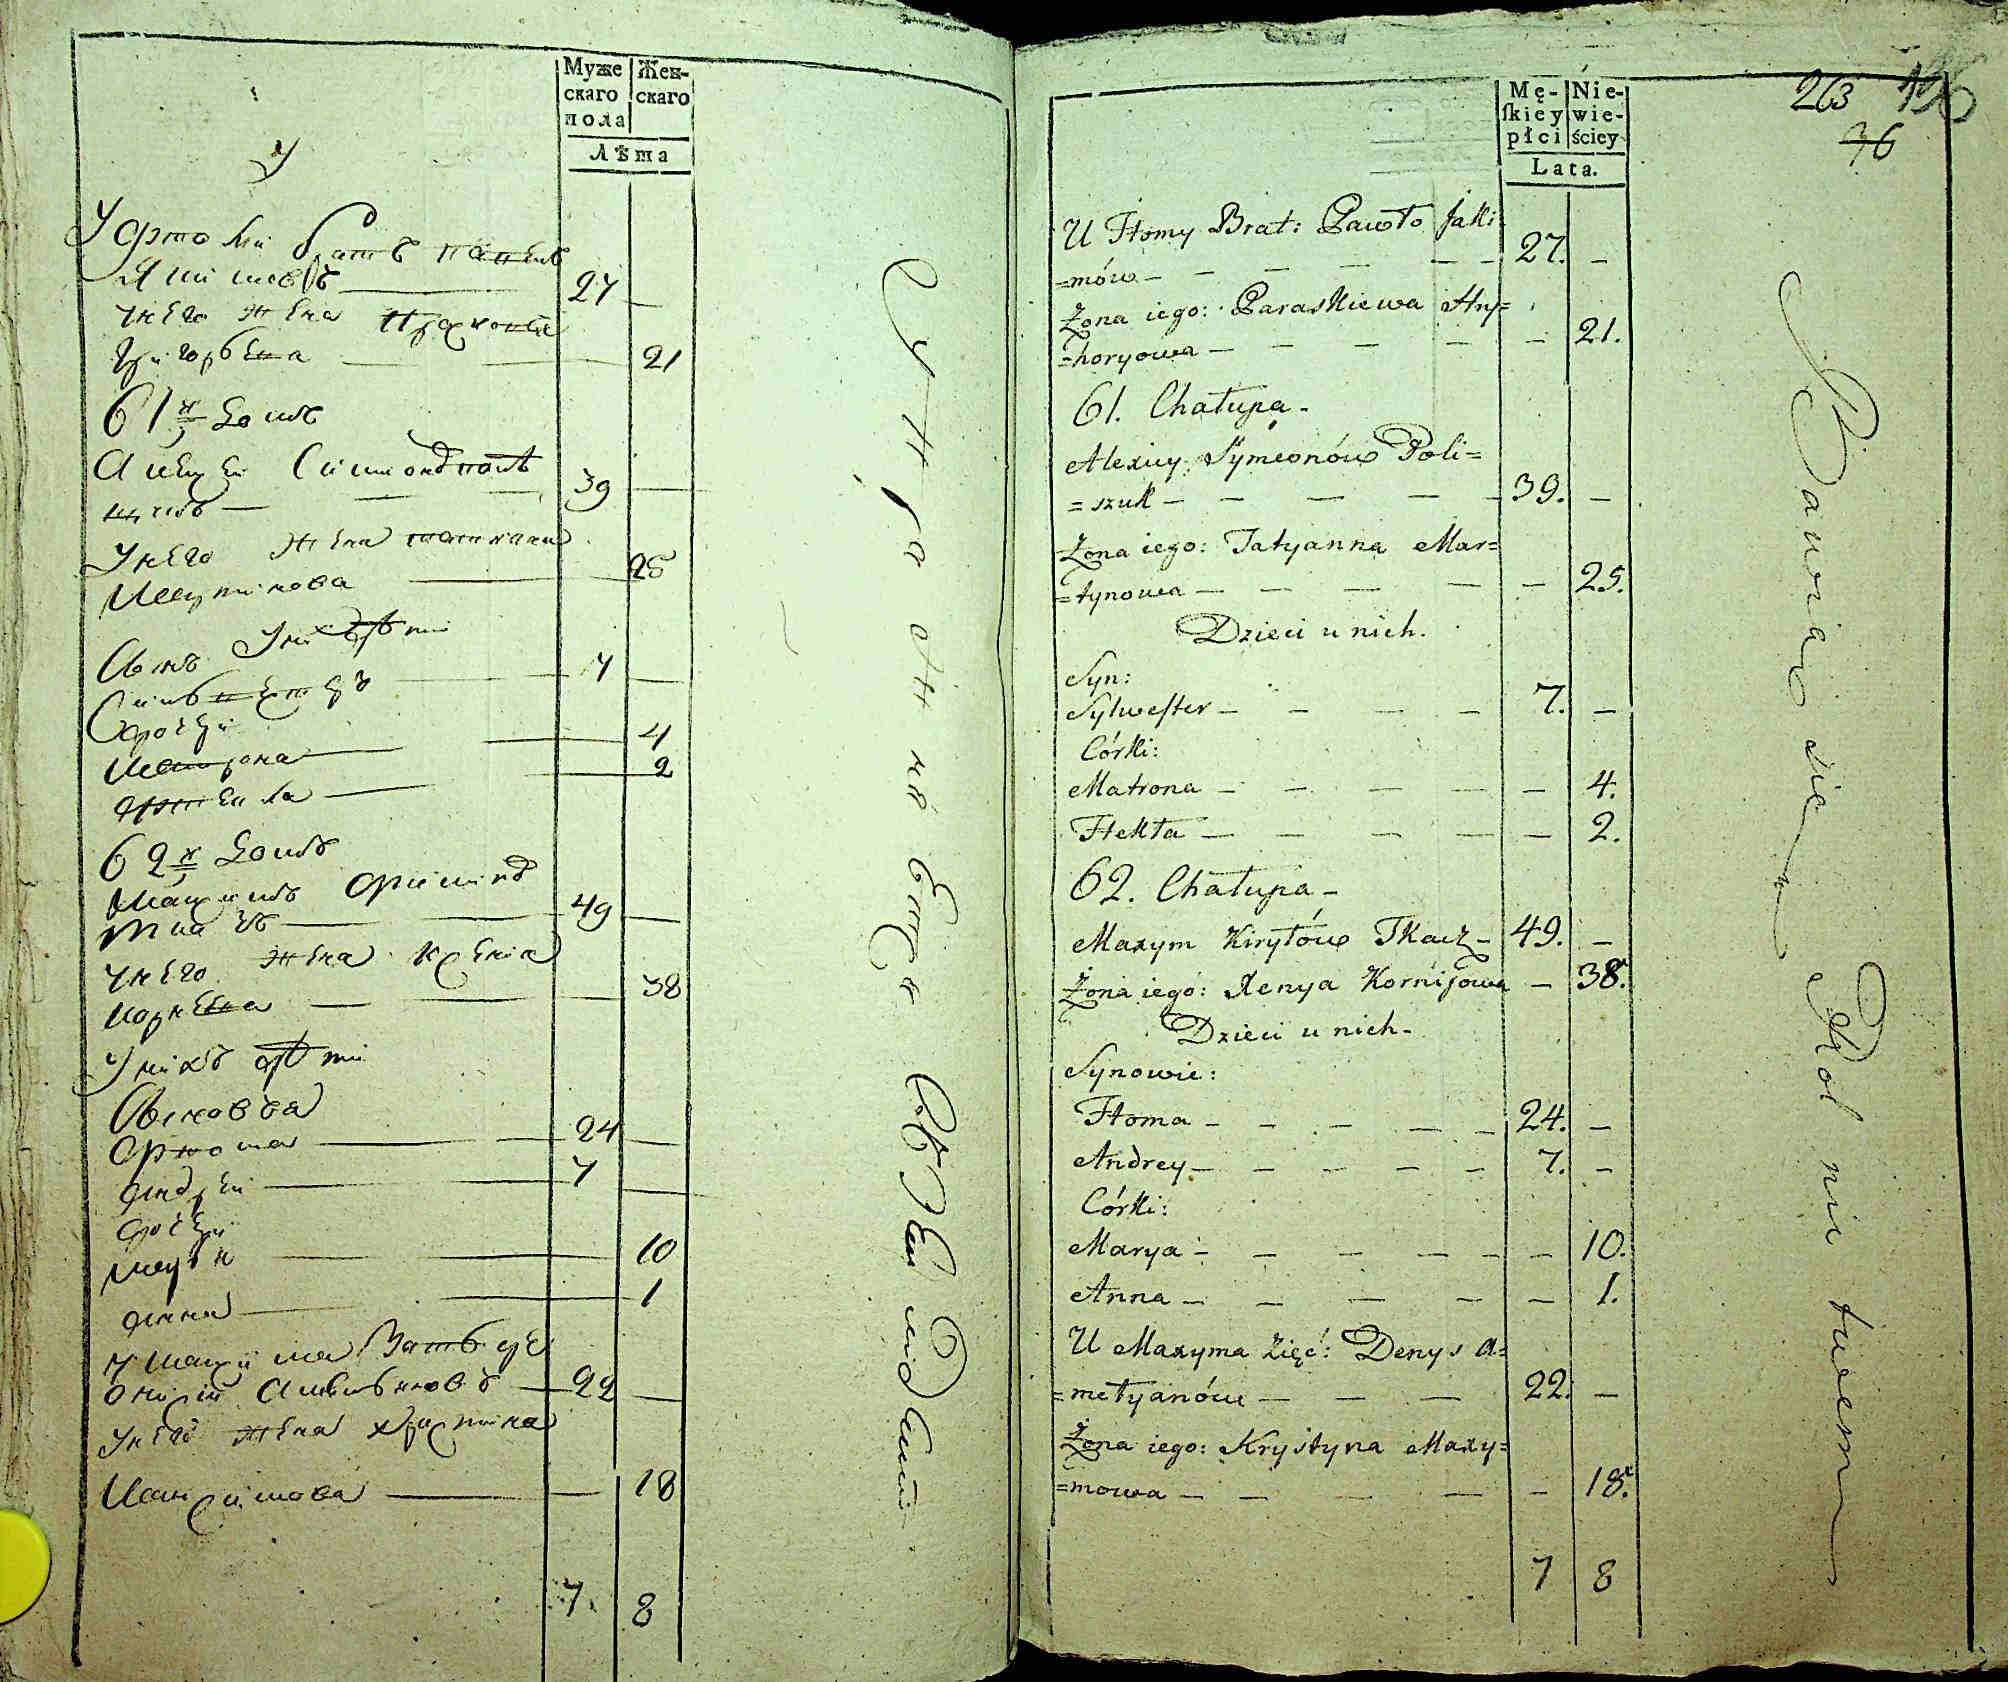 Муже
скаго
пола
Жен-
скаго
Лѣта
У Фомы братъ Павелъ
Якимовъ 27
у него жена Прасковья
Григорьева 21
61й домъ
Алексей Симоновъ Поли
щукъ 39
У него жена Татиана
Мартинова 25
У нихъ дѣти
Сынъ
Сильвестръ 7
Дочери
Матрона 4
Фекла 2
62й домъ
Максимъ Кириловъ
Ткачъ 49
у него жена Ксения
Корнеева 38
У нихъ дѣти
Сыновья
Фома 24
Андрей 7
Дочери
Марья 10
Анна 1
У Максима зять Де
онисий Амельяновъ 22
У него жена Христина
Максимова 18
7 8
Mę-
skiey
płci
Nie-
wie-
ściey
Lata.
263
36
U Homy Brat: Pawło Jaki
=mów 27.
Żona iego: Paraskiewa Hry=
=horyowa 21.
61. Chałupa
Alexiey Symeonów Poli=
=szuk 39.
Żona iego: Tatyanna Mar=
=tynowa 25.
Dzieci u nich.
Syn:
Sylwester 7.
Córki:
Matrona 4.
Hekła 2.
62. Chałupa
Maxym Kiryłów Tkacz 49.
Żona iego: Xenya Kornijowa 38.
Dzieci u nich
Synowie:
Homa 24.
Andrey 7.
Córki:
Marya 10.
Anna 1.
U Maxyma Zięć: Denys A=
=mełyanów 22.
Żona iego: Krystyna Maxy=
=mowa 18.
7 8